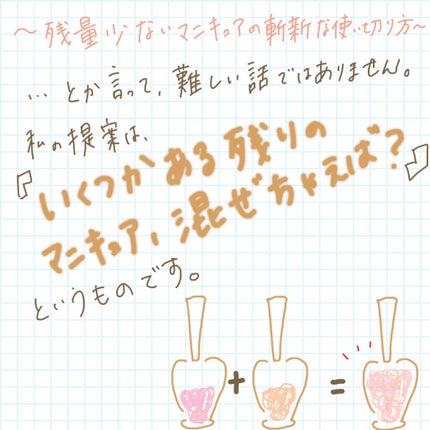 ～残量少ないマニキュアの斬新な使い切り方～
…とか言って、難しい話ではありません。
私の提案は、
『いくつかある残りの
マニキュア、混ぜちゃえば？』
というものです。
+ =